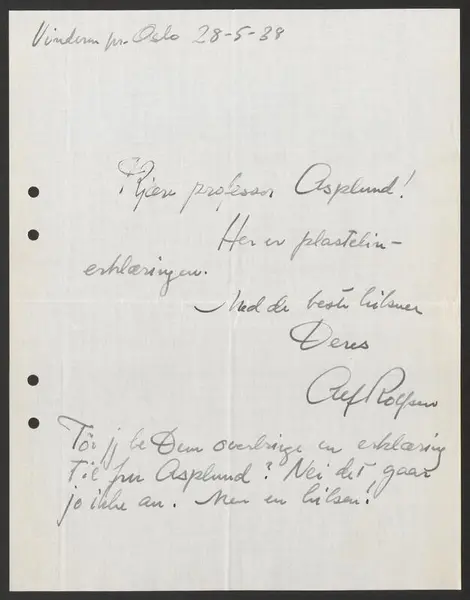 Vinderen pr. Oslo 28-5-38
Kjære professor Asplund!
Her er plastelin-
erklæringen.
Med de beste hilsner
Deres
Alf Rolfsen
Tör jeg be Dem overbringe en erklæring
til fru Asplund? Nei det gaar
jo ikke an. Men en hilsen!